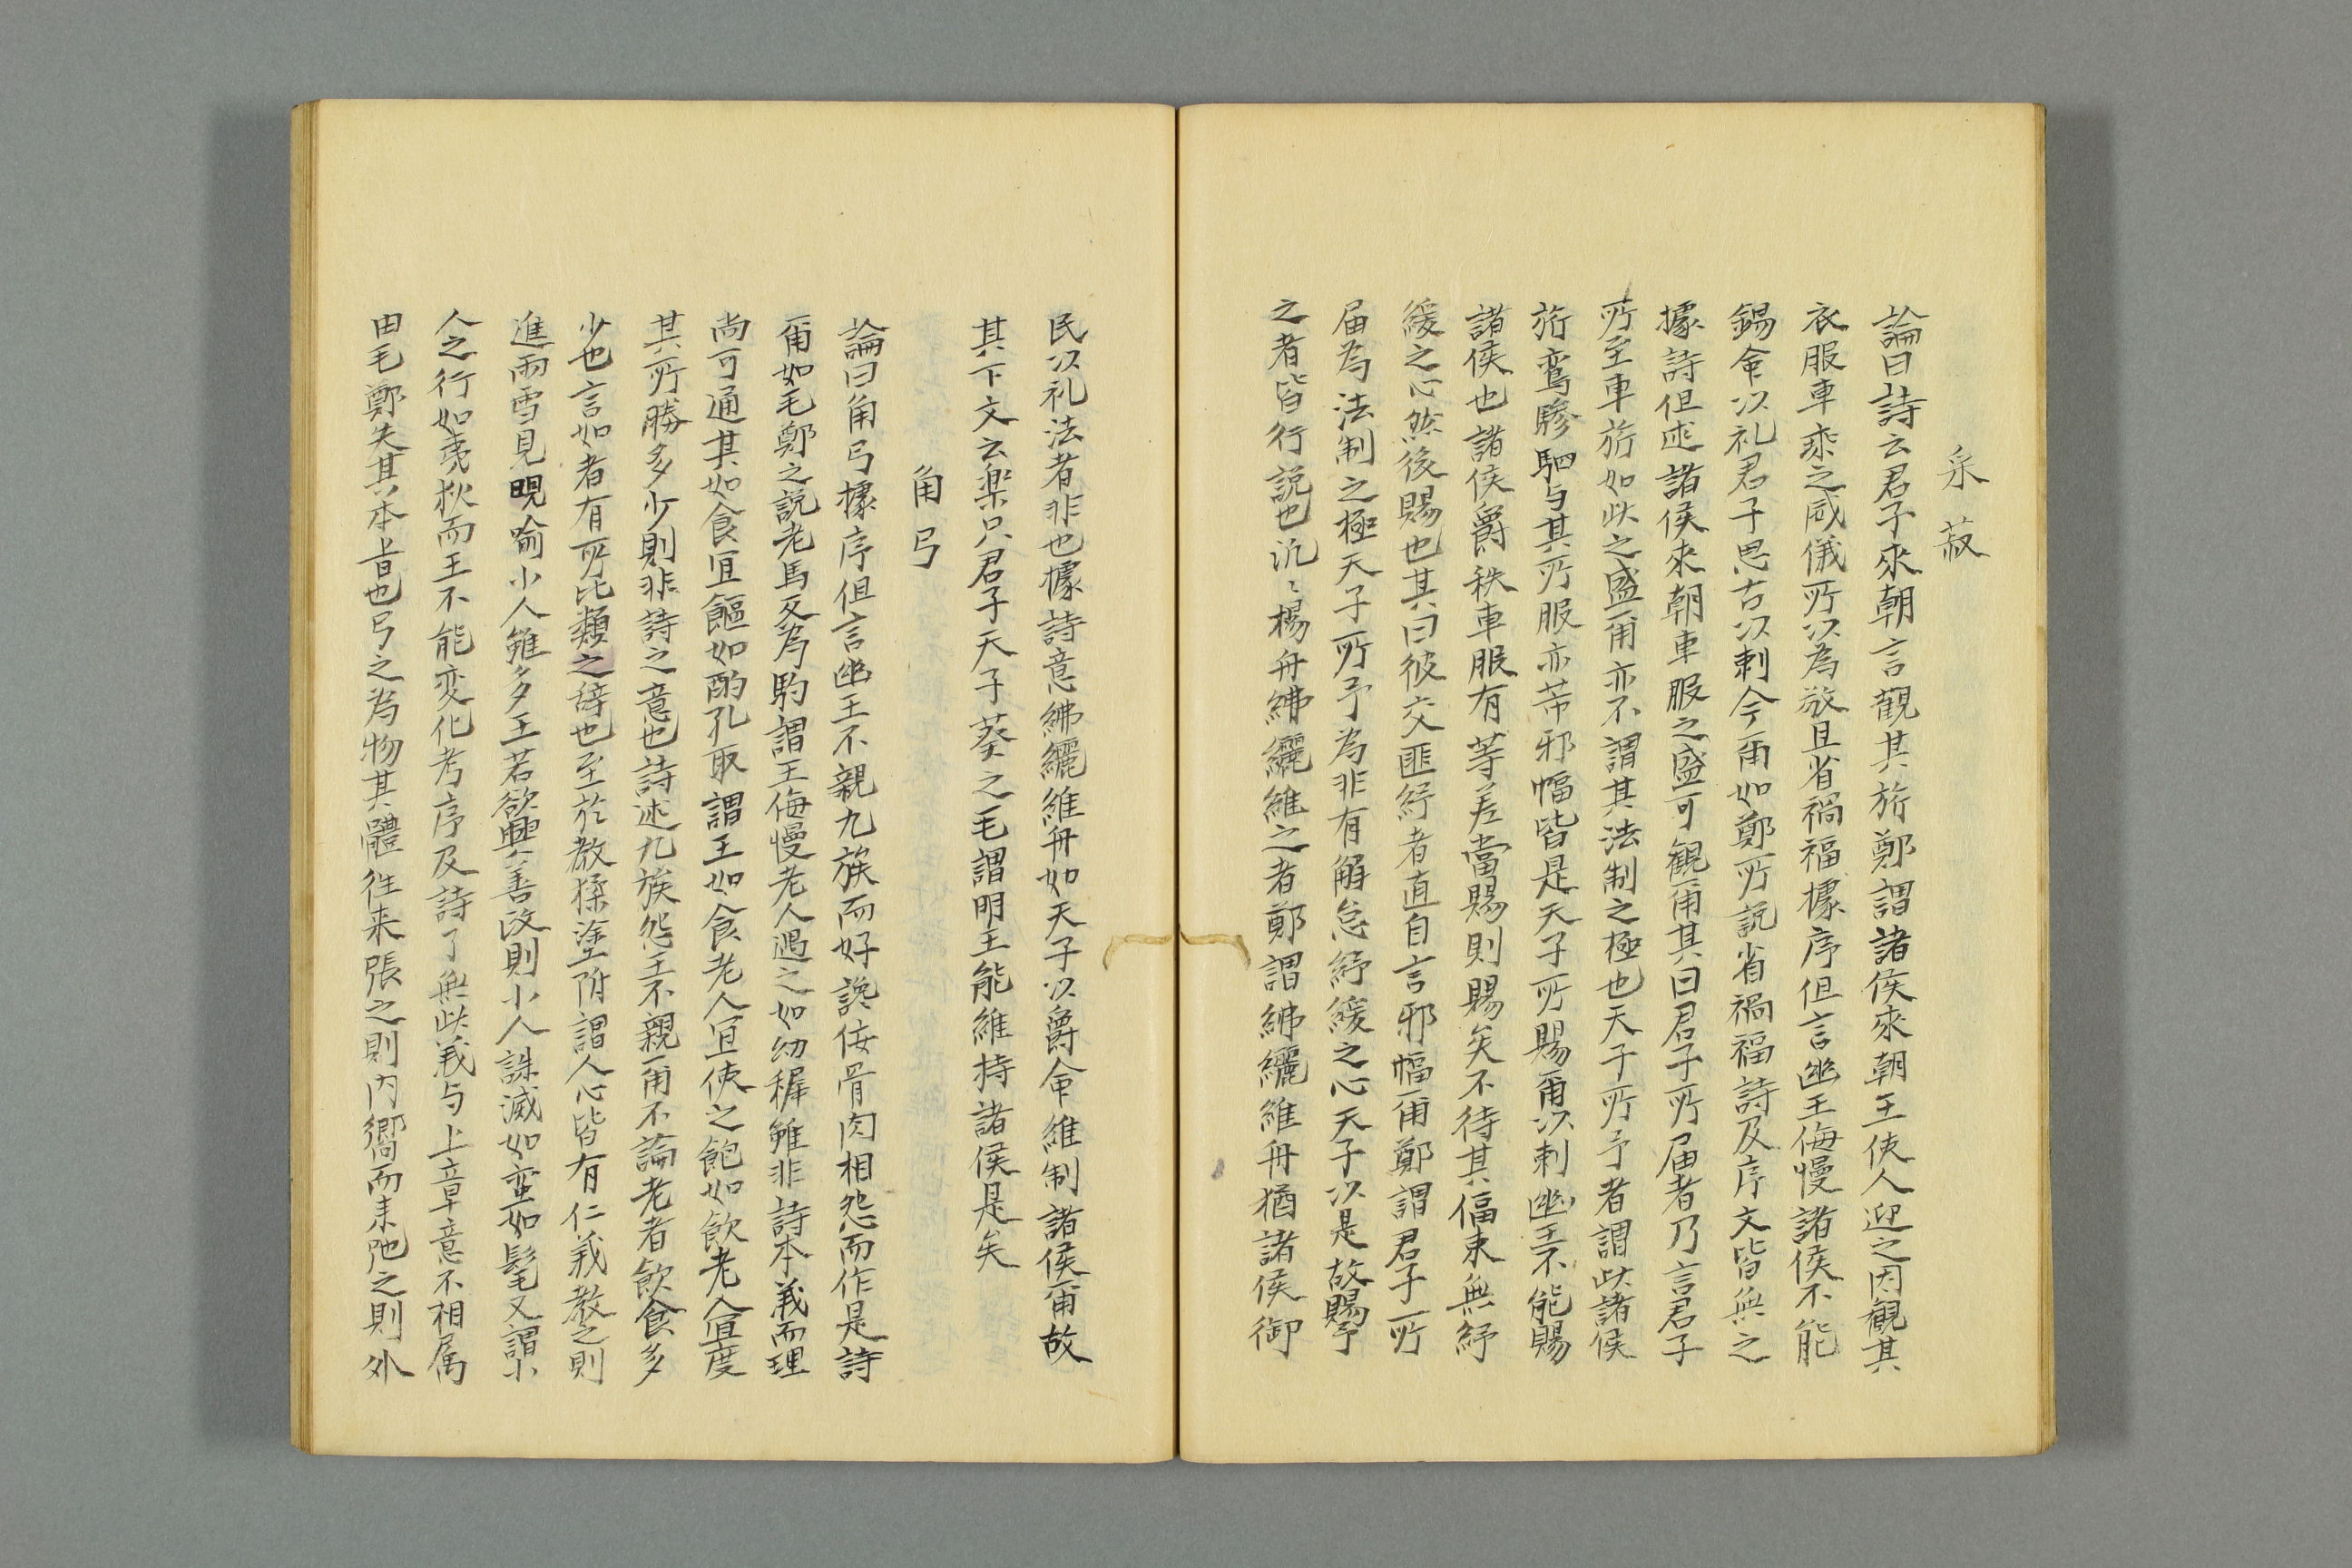 采菽
論曰詩云君子來朝言觀其旂鄭謂諸侯來朝王使人迎之因觀其
衣服車乗之威儀所以為敬且省禍福據序但言幽王侮慢諸侯不能
錫命以礼君子思古以刺今爾如鄭所説省禍福詩及序文皆無之
據詩但述諸侯來朝車服之盛可觀爾其曰君子所届者乃言君子
所至車旂如此之盛爾亦不謂其法制之極也天子所予者謂此諸侯
旂鸞驂駟与其所服赤芾邪幅皆是天子所賜爾以刺幽王不能賜
諸侯也諸侯爵秩車服有等差當賜則賜矣不待其偪束無紓
緩之心然後賜也其曰彼交匪紓者直自言邪幅爾鄭謂君子所
届為法制之極天子所予為非有解怠紓緩之心天子以是故賜予
之者皆行説也汎〻楊舟紼纚維之者鄭謂紼纚維舟猶諸侯御
民以礼法者非也據詩意紼纚維舟如天子以爵命維制諸侯爾故
其下文云楽只君子天子葵之毛謂明王能維持諸侯是矣
角弓
論曰角弓據序但言幽王不親九族而好讒佞骨肉相怨而作是詩
爾如毛鄭之説老馬反為駒謂王侮慢老人遇之如幼稺雖非詩本義而理
尚可通其如食宜饇如酌孔取謂王如食老人宜使之飽如飲老人宜度
其所勝多少則非詩之意也詩述九族怨王不親爾不論老者飲食多
少也言如者有所比類之辞也至於教猱塗附謂人心皆有仁義教之則
進雨雪見晛喻小人雖多王若欲興善政則小人誅滅如蛮如髦又謂小
人之行如夷狄而王不能変化考序及詩了無此義与上章意不相属
由毛鄭失其本旨也弓之為物其體往来張之則内嚮而来弛之則外